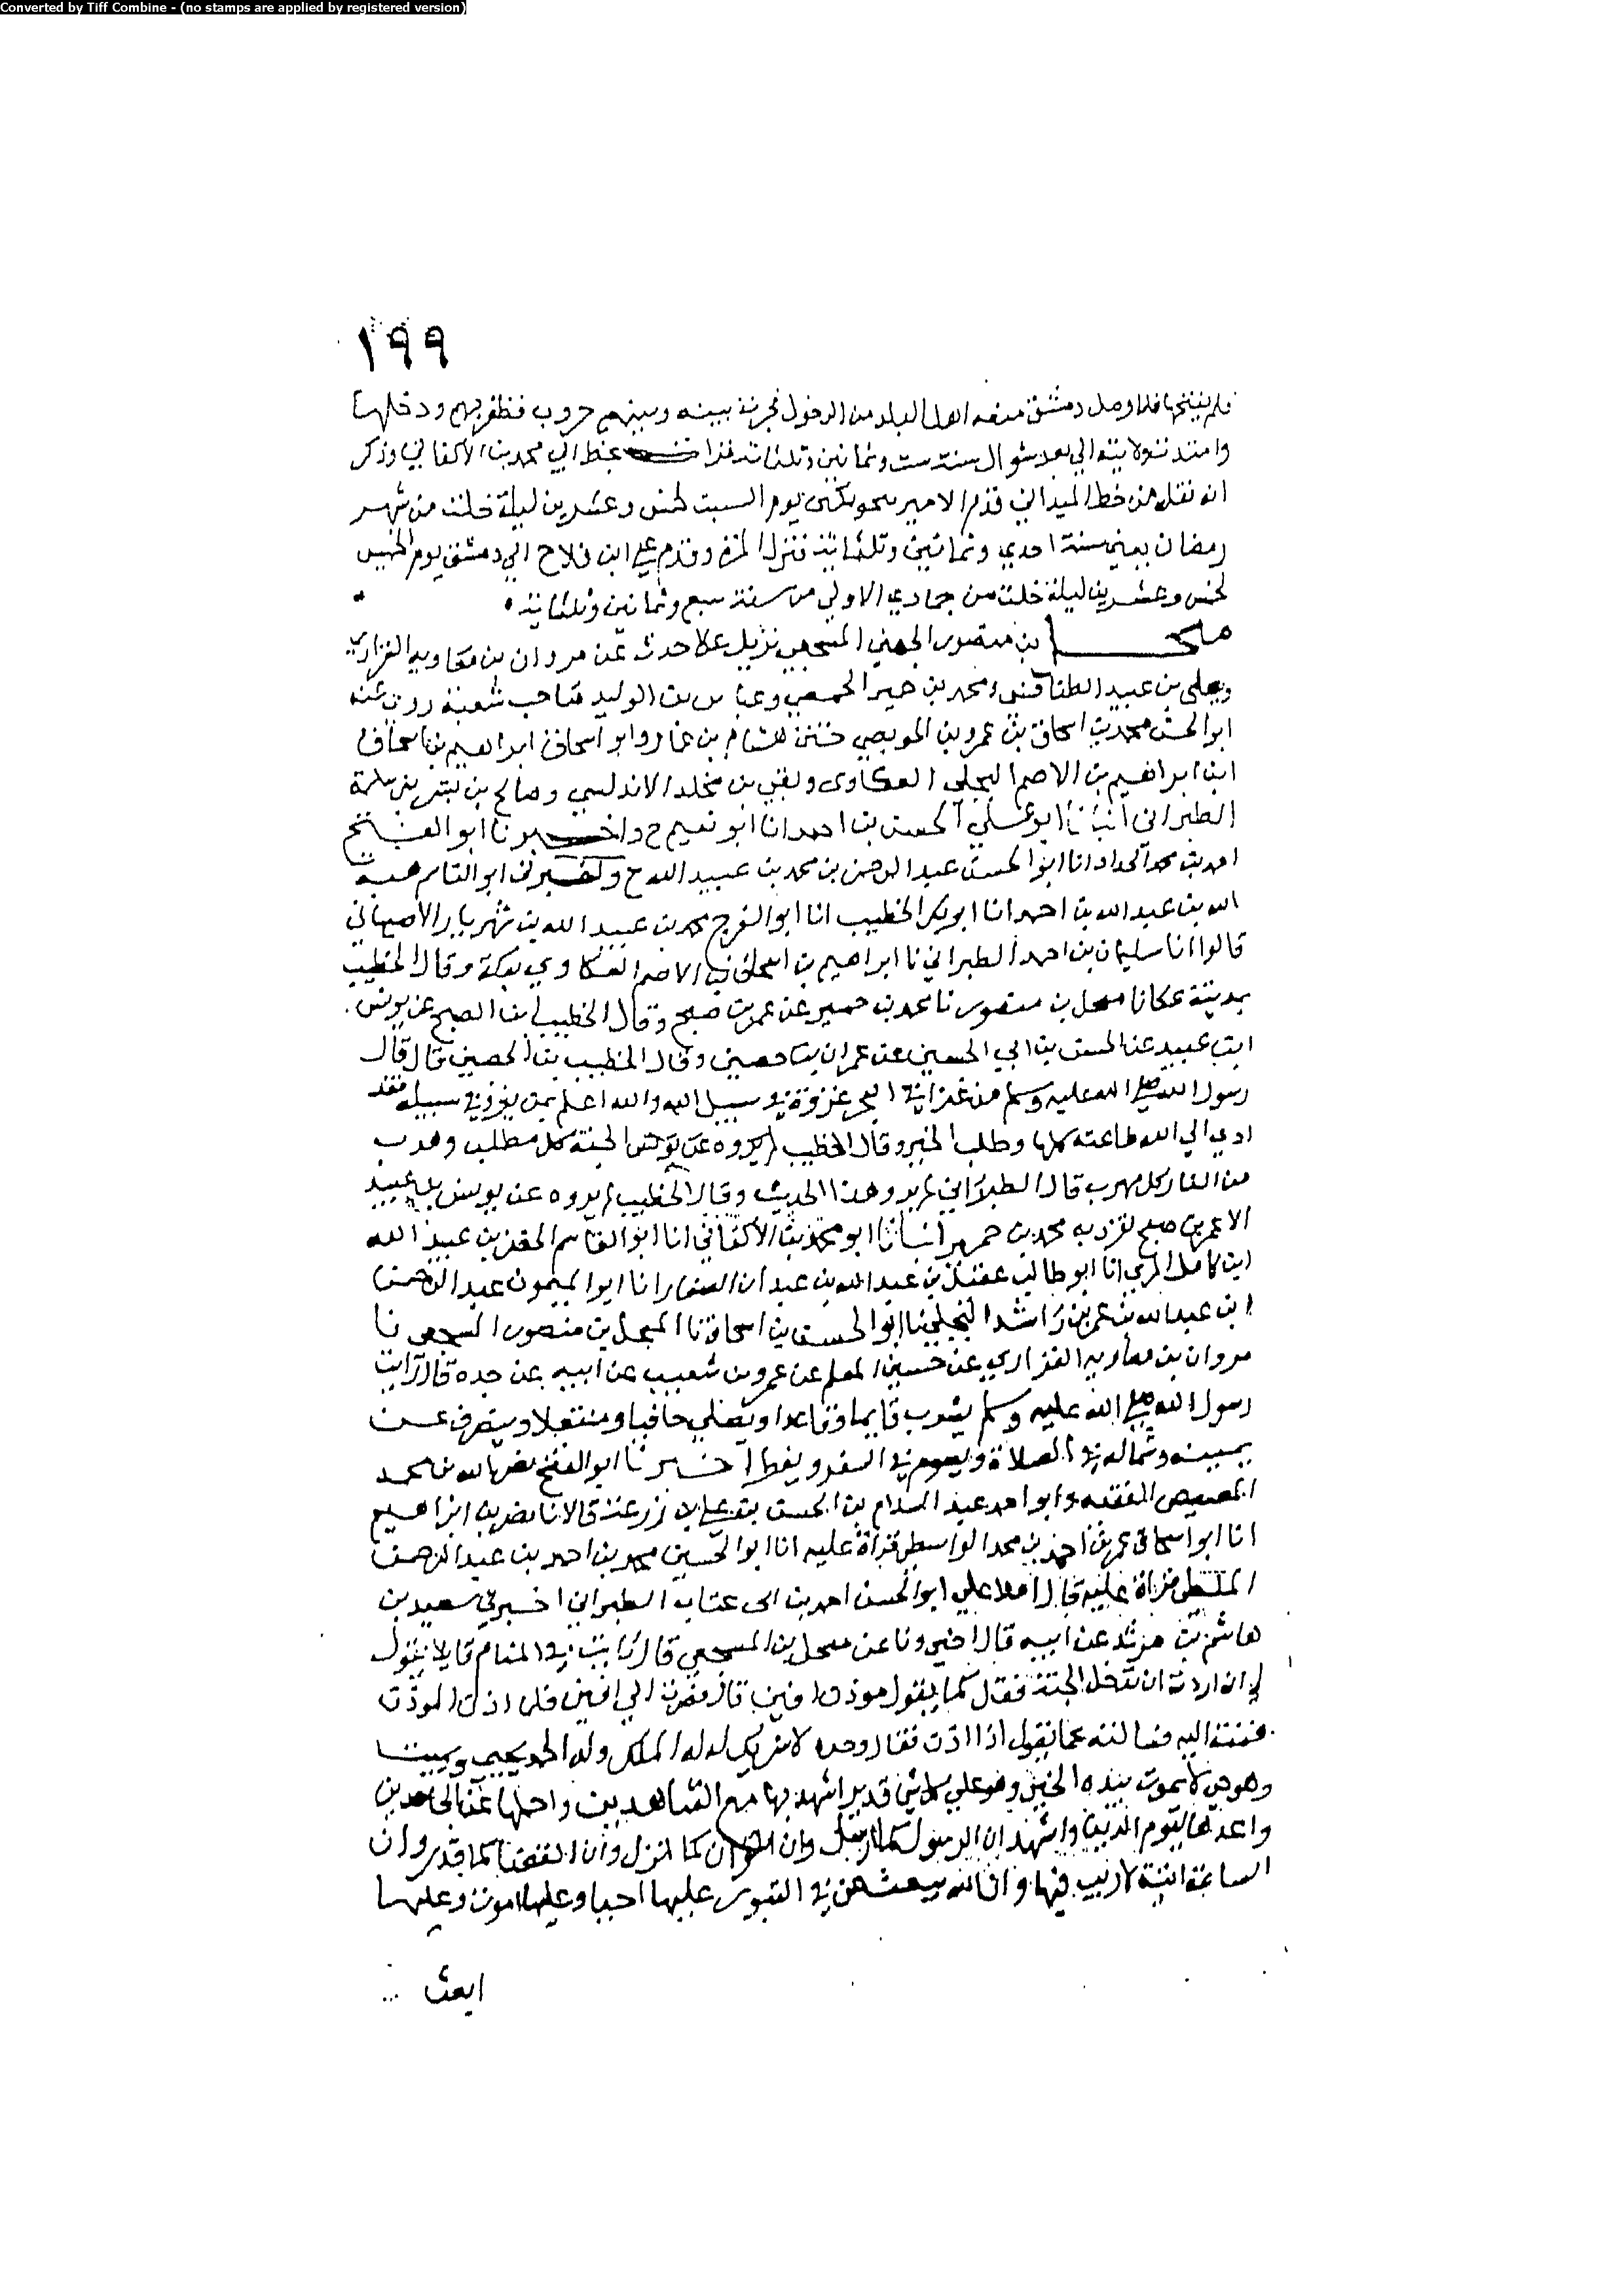 Converted by Tiff Combine - (no stamps are applied by registered version)
١٩٩
فلم يفتحها فلما وصل دمشق منعه اهل البلد من الدخول فجرت بينه وبينهم حروب فظفر بهم ودخلها
وامتدت ولايته الي بعد شوال سنة ست وثمانين وثلثمائة بخط ابي محمد بن الاكفاني وذكر
انه نقله من خط الميداني قدم الامير يوم السبت لخمس وعشرين ليلة خلت من شهر
رمضان يعني سنة احدي وثمانين وثلثمائة فنزل المزة وقدم علي ابن فلاح الي دمشق يوم الخميس
لخمس وعشرين ليلة خلت من جمادي الاولي من سنة سبع وثمانين وثلثمائة
بن منصور الجهني المسجعي نزيل عكا حدث عن مروان بن معاويه الفزاري
ويعلي بن عبيد الطنافسي ومحمد بن حمير الحمصي وعباس بن الوليد صاحب شعبة روي عنه
ابو الحسن محمد بن اسحاق بن عمرو بن ختن هشام بن عمار وابو اسحاق ابراهيم بن اسحاق
ابن ابراهيم بن الاصم البجلي العكاوي وبقي بن مخلد الاندلسي وصالح بن بشر بن سلمة
الطبراني انبانا ابو علي الحسن بن احمد انا ابو نعيم ح واخبرنا ابو الفتح
احمد بن محمد الحداد انا ابو الحسن عبد الرحمن بن محمد بن عبيد الله ح واخبرني ابو القاسم هبة
الله بن عبد الله بن احمد انا ابو بكر الخطيب انا ابو الفرج محمد بن عبيد الله بن شهريار الاصبهاني
قالوا انا سليمان بن احمد الطبراني نا ابراهيم بن اسحاق بن الاصم العكاوي بعكة وقال الخطيب
بمدينة عكا نا منصور نا محمد بن حمير عن عمر بن صبح وقال الخطيب ابن الصبح عن يونس
ابن عبيد عن الحسن بن ابي الحسين عن عمران بن حصين وقال الخطيب بن الحصين قال قال
رسول الله صلي الله عليه وسلم من غزا في البحر غزوة في سبيل الله والله اعلم بمن يغزو في سبيله فقد
ادي الي الله طاعته كلها وطلب الخير وقال الخطيب الجنة كل مطلب وهرب
من النار كل مهرب قال الطبراني لم يرو هذا الحديث وقال الخطيب لم يروه عن يونس بن عبيد
الا عمر بن صبح تفرد به محمد بن حمير انبانا ابو محمد بن الاكفاني انا ابو القاسم الخضر بن عبيد الله
ابن كامل المري انا ابو طالب عقيل بن عبد الله بن عبدان الصفار انا ابو الميمون عبد الرحمن
ابن عبد الله بن عمر بن راشد البجلي نا ابو الحسن بن اسحاق نا بن منصور المسجعي نا
مروان بن معاويه الفزاري عن حسين المعلم عن عمرو بن شعيب عن ابيه عن جده قال رايت
رسول الله صلي الله عليه وسلم يشرب قايما وقاعدا ويصلي حافيا ومنتعلا وينصرف عن
يمينه وشماله في الصلاة ويصوم في السفر ويفطر اخبرنا ابو الفتح نصر الله بن محمد
المصيصي الفقيه وابو احمد عبد السلام بن الحسن بن علي بن زرعة قالا نا نصر بن ابراهيم
انا ابو اسحاق عمر بن احمد بن محمد الواسطي قراة عليه انا ابو الحسين محمد بن احمد بن عبد الرحمن
الملطي قراة عليه قال املا علي ابو الحسن احمد بن الطبراني اخبرني سعيد بن
هاشم بن مرثد عن ابيه قال اخبرونا عن المسجعي قال رايت في المنام قايلا يقول
لي ان اردت ان تدخل الجنة فقل كما يقول موذن قال فصرت الي فلما اذن الموذن
قمت اليه فسالته عما يقول اذا اذن فقال وحده لا شريك له له الملك وله الحمد يحيي ويميت
وهو حي لا يموت بيده الخير وهو علي كل شي قدير اشهد بها مع الشاهدين واحملها عن الجاحدين
واعدها ليوم الدين واشهد ان الرسول كما ارسل وان القران كما انزل وان القضا كما قدر وان
الساعة اتية لا ريب فيها وان الله يبعث من في القبور عليها احيا وعليها اموت وعليها
ابعث